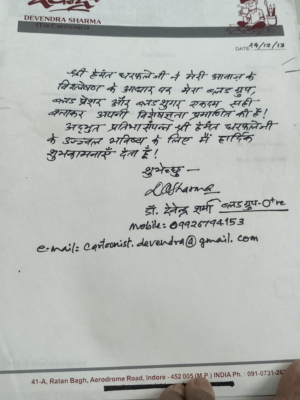 DEVENDRA SHARMA
DATE 29/12/13
श्री हेमंत धरफलेजी ने मेरी आवाज के
विश्लेषण के आधार पर मेरा ब्लड ग्रुप,
ब्लड प्रेशर और ब्लड शुगर एकदम सही
बताकर अपनी विशेषज्ञता प्रमाणित की है!
अद्भुत प्रतिभा संपन्न श्री हेमंत धरफलेजी
के उज्ज्वल भविष्य के लिए मैं हार्दिक
शुभकामनाएँ देता हूँ!
शुभेच्छु -
DSharma
डॉ. देवेन्द्र शर्मा ब्लड ग्रुप-O+ve
Mobile: 09926794153
e-mail: cartoonist.devendra@gmail.com
41-A, Ratan Bagh, Aerodrome Road, Indore - 452 005 (M.P.) INDIA Ph. : 091-0731-26